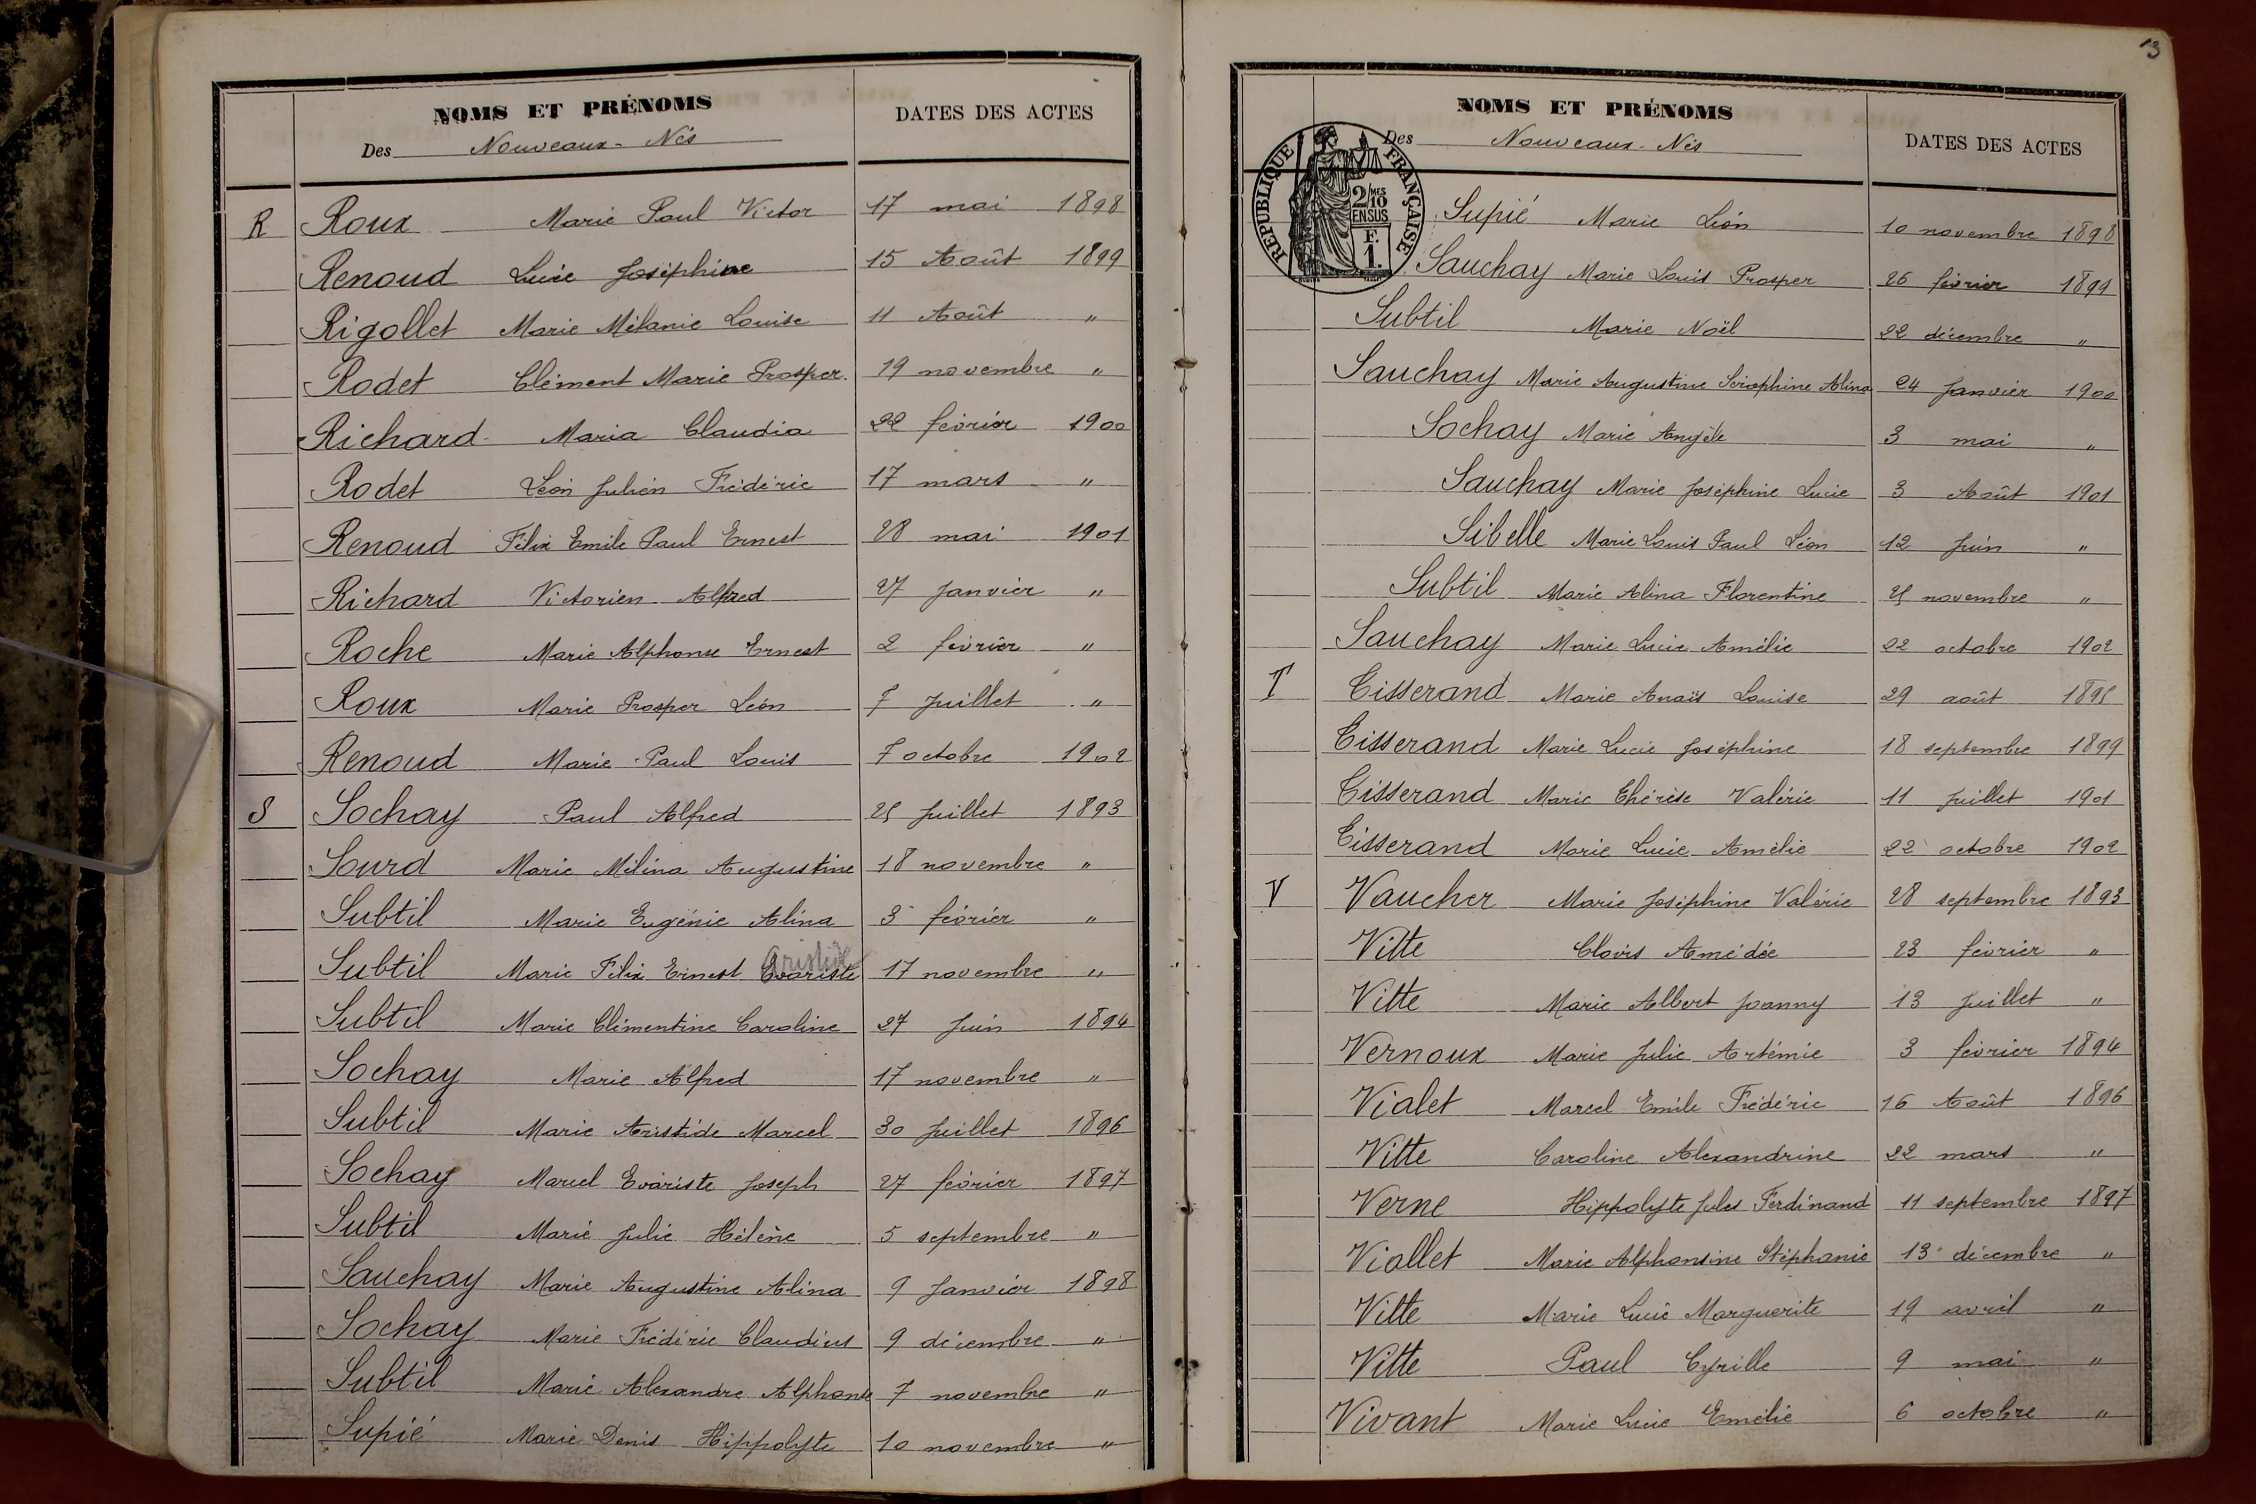 NOMS ET PRÉNOMS
Des Nouveaux-Nés
DATES DES ACTES
R Roux Marie Paul Victor 17 mai 1898
Renoud Lucie Joséphine 15 Août 1899
Rigollet Marie Mélanie Louise 11 Août "
Rodet Clément Marie Prosper 19 novembre "
Richard Maria Claudia 22 février 1900
Rodet Léon Julien Frédéric 17 mars "
Renoud Félix Emile Paul Ernest 28 mai 1901
Richard Victorien Alfred 27 Janvier "
Roche Marie Alphonse Ernest 2 février "
Roux Marie Prosper Léon 7 Juillet "
Renoud Marie Paul Louis 7 octobre 1902
S Sochay Paul Alfred 25 Juillet 1893
Sourd Marie Mélina Augustine 18 novembre "
Subtil Marie Eugénie Alina 3 février "
Aristide
Subtil Marie Félix Ernest Evariste 17 novembre "
Subtil Marie Clémentine Caroline 27 Juin 1894
Sochay Marie Alfred 17 novembre "
Subtil Marie Aristide Marcel 30 Juillet 1896
Sochay Marcel Evariste Joseph 27 février 1897
Subtil Marie Julie Hélène 5 septembre "
Sauchay Marie Augustine Alina 9 Janvier 1898
Sochay Marie Frédéric Claudius 9 décembre "
Subtil Marie Alexandre Alphonse 7 novembre "
Supié Marie Denis Hippolyte 10 novembre "
13
NOMS ET PRÉNOMS
Des Nouveaux-Nés
DATES DES ACTES
REPUBLIQUE FRANÇAISE
2/10 MES
EN SUS
F.
1.
Supié Marie Léon 10 novembre 1898
Sauchay Marie Louis Prosper 26 février 1899
Subtil Marie Noël 22 décembre "
Sauchay Marie Augustine Séraphine Alina 24 Janvier 1900
Sochay Marie Angèle 3 mai "
Sauchay Marie Joséphine Lucie 3 Août 1901
Sibelle Marie Louis Paul Léon 12 Juin "
Subtil Marie Alina Florentine 25 novembre "
Sauchay Marie Lucie Amélie 22 octobre 1902
T Tisserand Marie Anaïs Louise 29 août 1895
Tisserand Marie Lucie Joséphine 18 septembre 1899
Tisserand Marie Thérèse Valérie 11 Juillet 1901
Tisserand Marie Lucie Amélie 22 octobre 1902
V Vaucher Marie Joséphine Valérie 28 septembre 1893
Vitte Clovis Amédée 23 février "
Vitte Marie Albert Joanny 13 Juillet "
Vernoux Marie Julie Artémie 3 février 1894
Vialet Marcel Emile Frédéric 16 Août 1896
Vitte Caroline Alexandrine 22 mars "
Verne Hippolyte Jules Ferdinand 11 septembre 1897
Viallet Marie Alphonsine Stéphanie 13 décembre "
Vitte Marie Lucie Marguerite 19 avril "
Vitte Paul Cyrille 9 mai "
Vivant Marie Lucie Emélie 6 octobre "